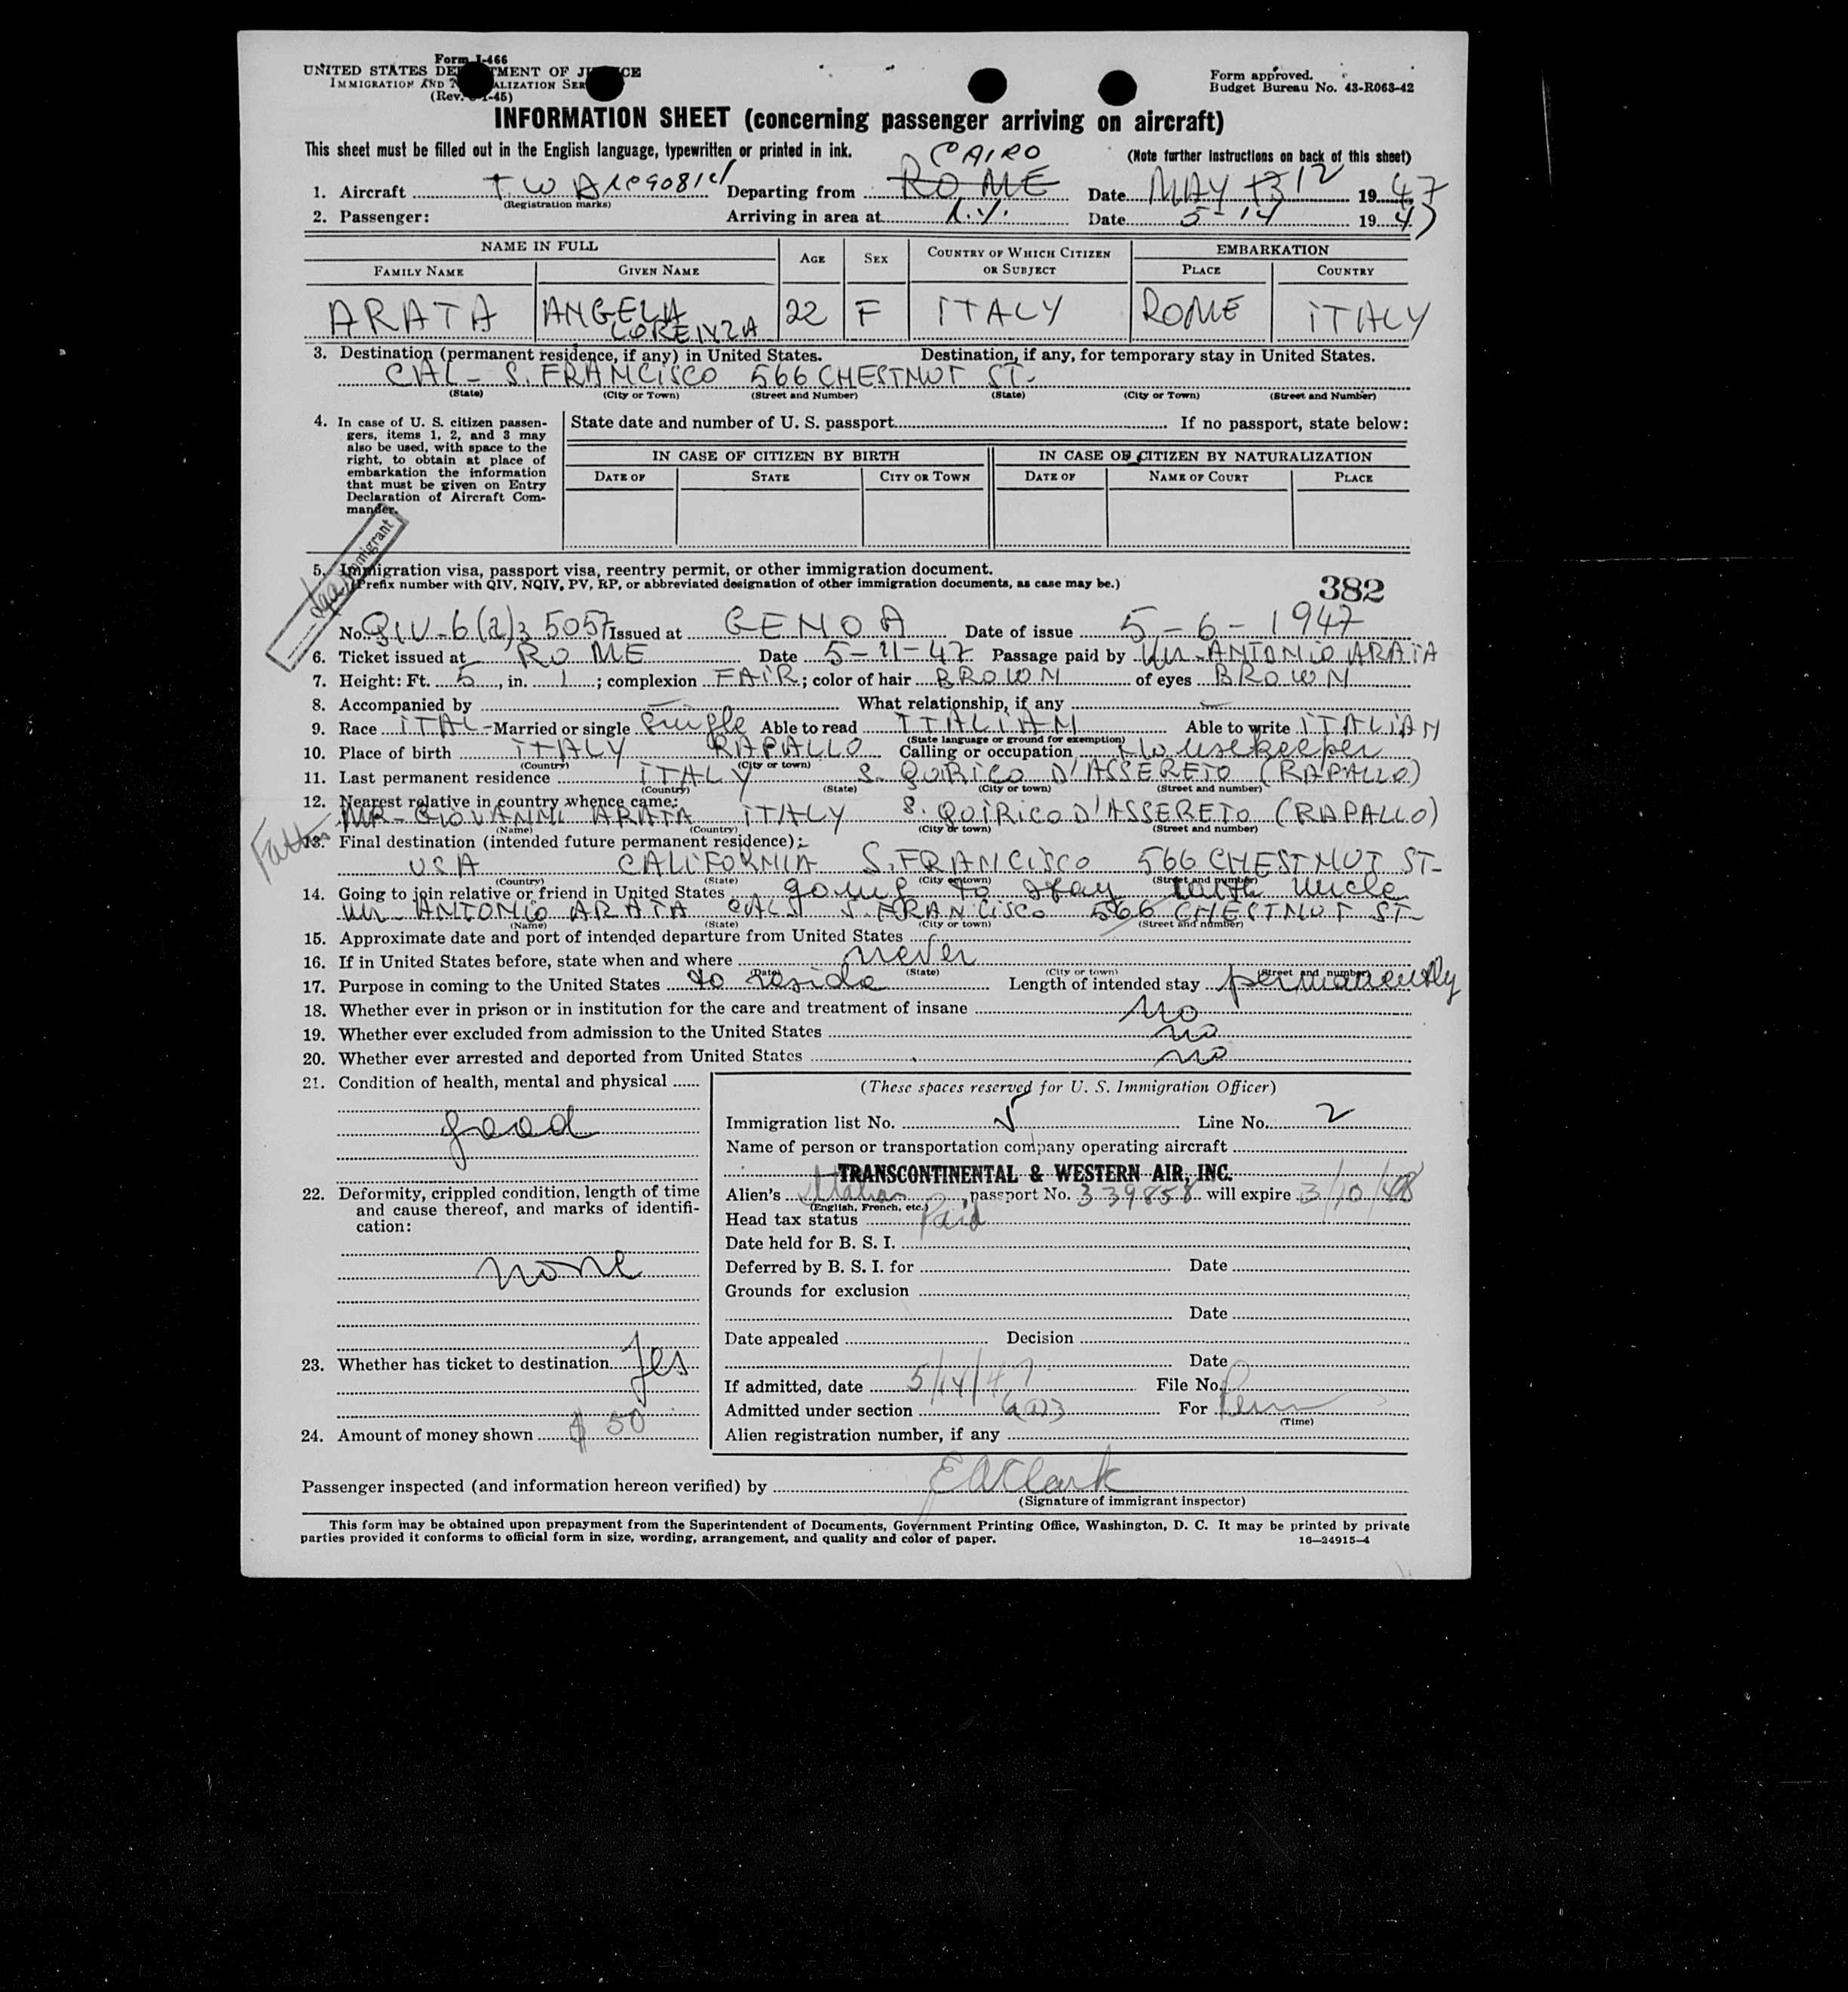 Form I-466
UNITED STATES DEPARTMENT OF JUSTICE
IMMIGRATION AND NATURALIZATION SERVICE
(Rev. -45)
Form approved.
Budget Bureau No. 43-R063-42
INFORMATION SHEET (concerning passenger arriving on aircraft)
This sheet must be filled out in the English language, typewritten or printed in ink.
(Note further Instructions on back of this sheet)
CAIRO
1. Aircraft T W A Departing from ROME Date MAY 13 12 1947
(Registration marks)
2. Passenger: Arriving in area at N.Y. Date 5-14 1947
NAME IN FULL AGE SEX COUNTRY OF WHICH CITIZEN OR SUBJECT EMBARKATION
FAMILY NAME GIVEN NAME PLACE COUNTRY
ARATA ANGELA LORENZA 22 F ITALY ROME ITALY
3. Destination (permanent residence, if any) in United States. Destination, if any, for temporary stay in United States.
CAL- S. FRANCISCO 566 CHESTNUT ST.
(State) (City or Town) (Street and Number) (State) (City or Town) (Street and Number)
4. In case of U. S. citizen passen-
gers, items 1, 2, and 3 may
also be used, with space to the
right, to obtain at place of
embarkation the information
that must be given on Entry
Declaration of Aircraft Com-
mander.
State date and number of U. S. passport If no passport, state below:
IN CASE OF CITIZEN BY BIRTH IN CASE OF CITIZEN BY NATURALIZATION
DATE OF STATE CITY OR TOWN DATE OF NAME OF COURT PLACE
Immigrant
5. Immigration visa, passport visa, reentry permit, or other immigration document.
(Prefix number with QIV, NQIV, PV, RP, or abbreviated designation of other immigration documents, as case may be.)
382
No. QIV-6(a)3 5057 Issued at GENOA Date of issue 5-6-1947
6. Ticket issued at ROME Date 5-11-47 Passage paid by Mr. ANTONIO ARATA
7. Height: Ft. 5, in. 1; complexion FAIR; color of hair BROWN of eyes BROWN
8. Accompanied by — What relationship, if any —
9. Race ITAL- Married or single Single Able to read ITALIAN Able to write ITALIAN
(State language or ground for exemption)
10. Place of birth ITALY RAPALLO Calling or occupation Housekeeper
(Country) (City or town)
11. Last permanent residence ITALY S. QUIRICO D'ASSERETO (RAPALLO)
(Country) (State) (City or town) (Street and number)
12. Nearest relative in country whence came:
Father MR- GIOVANNI ARATA ITALY S. QUIRICO D'ASSERETO (RAPALLO)
(Name) (Country) (City or town) (Street and number)
13. Final destination (intended future permanent residence):
USA CALIFORNIA S. FRANCISCO 566 CHESTNUT ST-
(Country) (State) (City or town) (Street and number)
14. Going to join relative or friend in United States going to stay with uncle
Mr- ANTONIO ARATA CAL S. FRANCISCO 566 CHESTNUT ST-
(Name) (State) (City or town) (Street and number)
15. Approximate date and port of intended departure from United States
16. If in United States before, state when and where never
(Date) (State) (City or town) (Street and number)
17. Purpose in coming to the United States to reside Length of intended stay permanently
18. Whether ever in prison or in institution for the care and treatment of insane no
19. Whether ever excluded from admission to the United States no
20. Whether ever arrested and deported from United States no
21. Condition of health, mental and physical
good
22. Deformity, crippled condition, length of time
and cause thereof, and marks of identifi-
cation:
none
23. Whether has ticket to destination Yes
24. Amount of money shown $ 50
(These spaces reserved for U. S. Immigration Officer)
Immigration list No. 5 Line No. 2
Name of person or transportation company operating aircraft
TRANSCONTINENTAL & WESTERN AIR, INC.
Alien's Italian, passport No. 339858 will expire 3/10/48
(English, French, etc.)
Head tax status Paid
Date held for B. S. I.
Deferred by B. S. I. for Date
Grounds for exclusion
Date
Date appealed Decision
Date
If admitted, date 5/14/47 File No.
Admitted under section For Perm
(Time)
Alien registration number, if any
Passenger inspected (and information hereon verified) by E A Clark
(Signature of immigrant inspector)
This form may be obtained upon prepayment from the Superintendent of Documents, Government Printing Office, Washington, D. C. It may be printed by private
parties provided it conforms to official form in size, wording, arrangement, and quality and color of paper.
16—24915-4